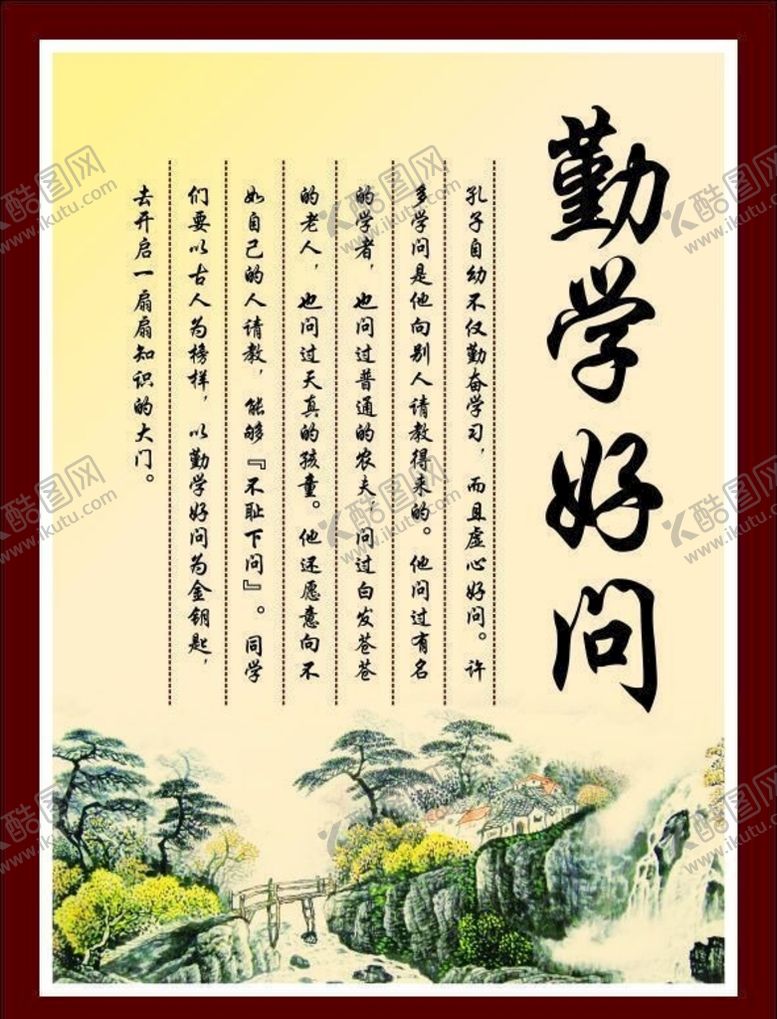 勤学好问
孔子自幼不仅勤奋学习，而且虚心好问。许
多学问是他向别人请教得来的。他问过有名
的学者，也问过普通的农夫，问过白发苍苍
的老人，也问过天真的孩童。他还愿意向不
如自己的人请教，能够『不耻下问』。同学
们要以古人为榜样，以勤学好问为金钥匙，
去开启一扇扇知识的大门。
酷图网
www.ikutu.com